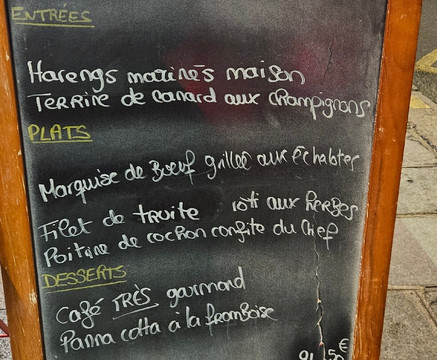 ENTRÉES
Harengs marinés maison
TERRINE de canard aux champignons
PLATS
Marquise de Boeuf grillée aux échalotes
Filet de truite rôti aux herbes
Poitrine de cochon confite du chef
DESSERTS
Café TRÈS gourmand
Panna cotta à la framboise
€